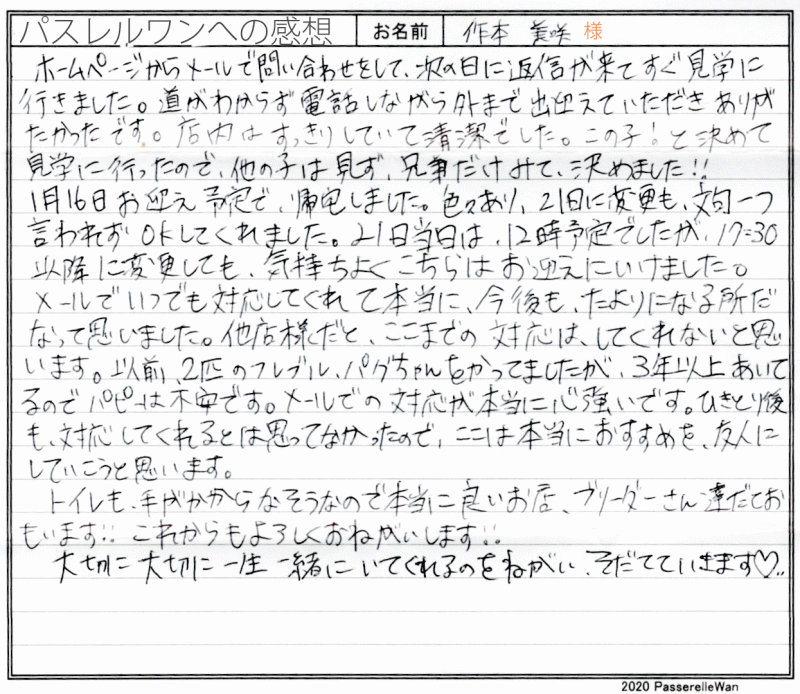 パスレルワンへの感想 お名前 作本 美咲 様
ホームページからメールで問い合わせをして、次の日に返信が来てすぐ見学に
行きました。道がわからず電話しながら外まで出迎えていただきありが
たかったです。店内はすっきりしていて清潔でした。この子!と決めて
見学に行ったので、他の子は見ず、兄弟だけみて、決めました!!
1月16日お迎え予定で、帰宅しました。色々あり、21日に変更も、文句一つ
言われずOKしてくれました。21日当日は、12時予定でしたが、17:30
以降に変更しても、気持ちよくこちらはお迎えにいけました。
メールでいつでも対応してくれて本当に、今後も、たよりになる所だ
なって思いました。他店様だと、ここまでの対応は、してくれないと思
います。以前、2匹のフレブル、パグちゃんをかってましたが、3年以上あいて
るのでパピーは不安です。メールでの対応が本当に心強いです。ひきとり後
も、対応してくれるとは思ってなかったので、ここは本当におすすめを、友人に
していこうと思います。
トイレも、手がかからなそうなので本当に良いお店、ブリーダーさん達だてお
もいます!! これからもよろしくおねがいします!!
大切に大切に一生一緒にいてくれるのをねがい、そだてていきます♡..
2020 PasserelleWan